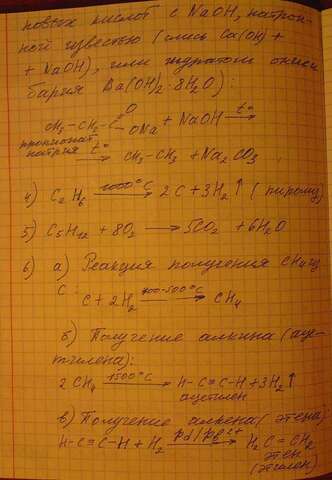 новых кислот с NaOH, натрон-
ной известью (смесь Ca(OH) +
+ NaOH), или гидратом окиси
бария Ba(OH)2·8H2O):
CH3-CH2-C(=O)ONa + NaOH t° →
пропионат
натрия
t° → CH3-CH3 + Na2CO3
4) C2H6 1000°C → 2C + 3H2↑ (пиролиз)
5) C5H12 + 8O2 → 5CO2 + 6H2O
6) а) Реакция получения CH4 из
C:
C + 2H2 400-500°C → CH4
б) Получение алкина (аце-
тилена):
2CH4 1500°C → H-C≡C-H + 3H2↑
ацетилен
в) Получение алкена (этена)
H-C≡C-H + H2 Pd/Pb2+ → H2C=CH2
этен
(этилен)